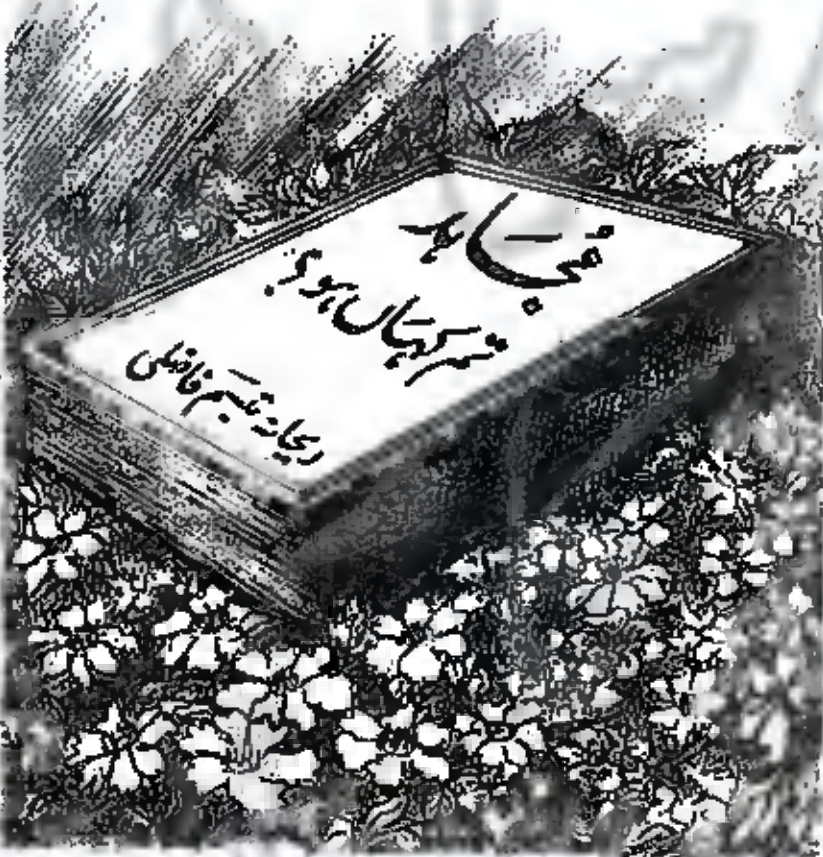 مُجَاہد
تم کہَاں ہو؟
ریحانہ تبسّم فاضلی